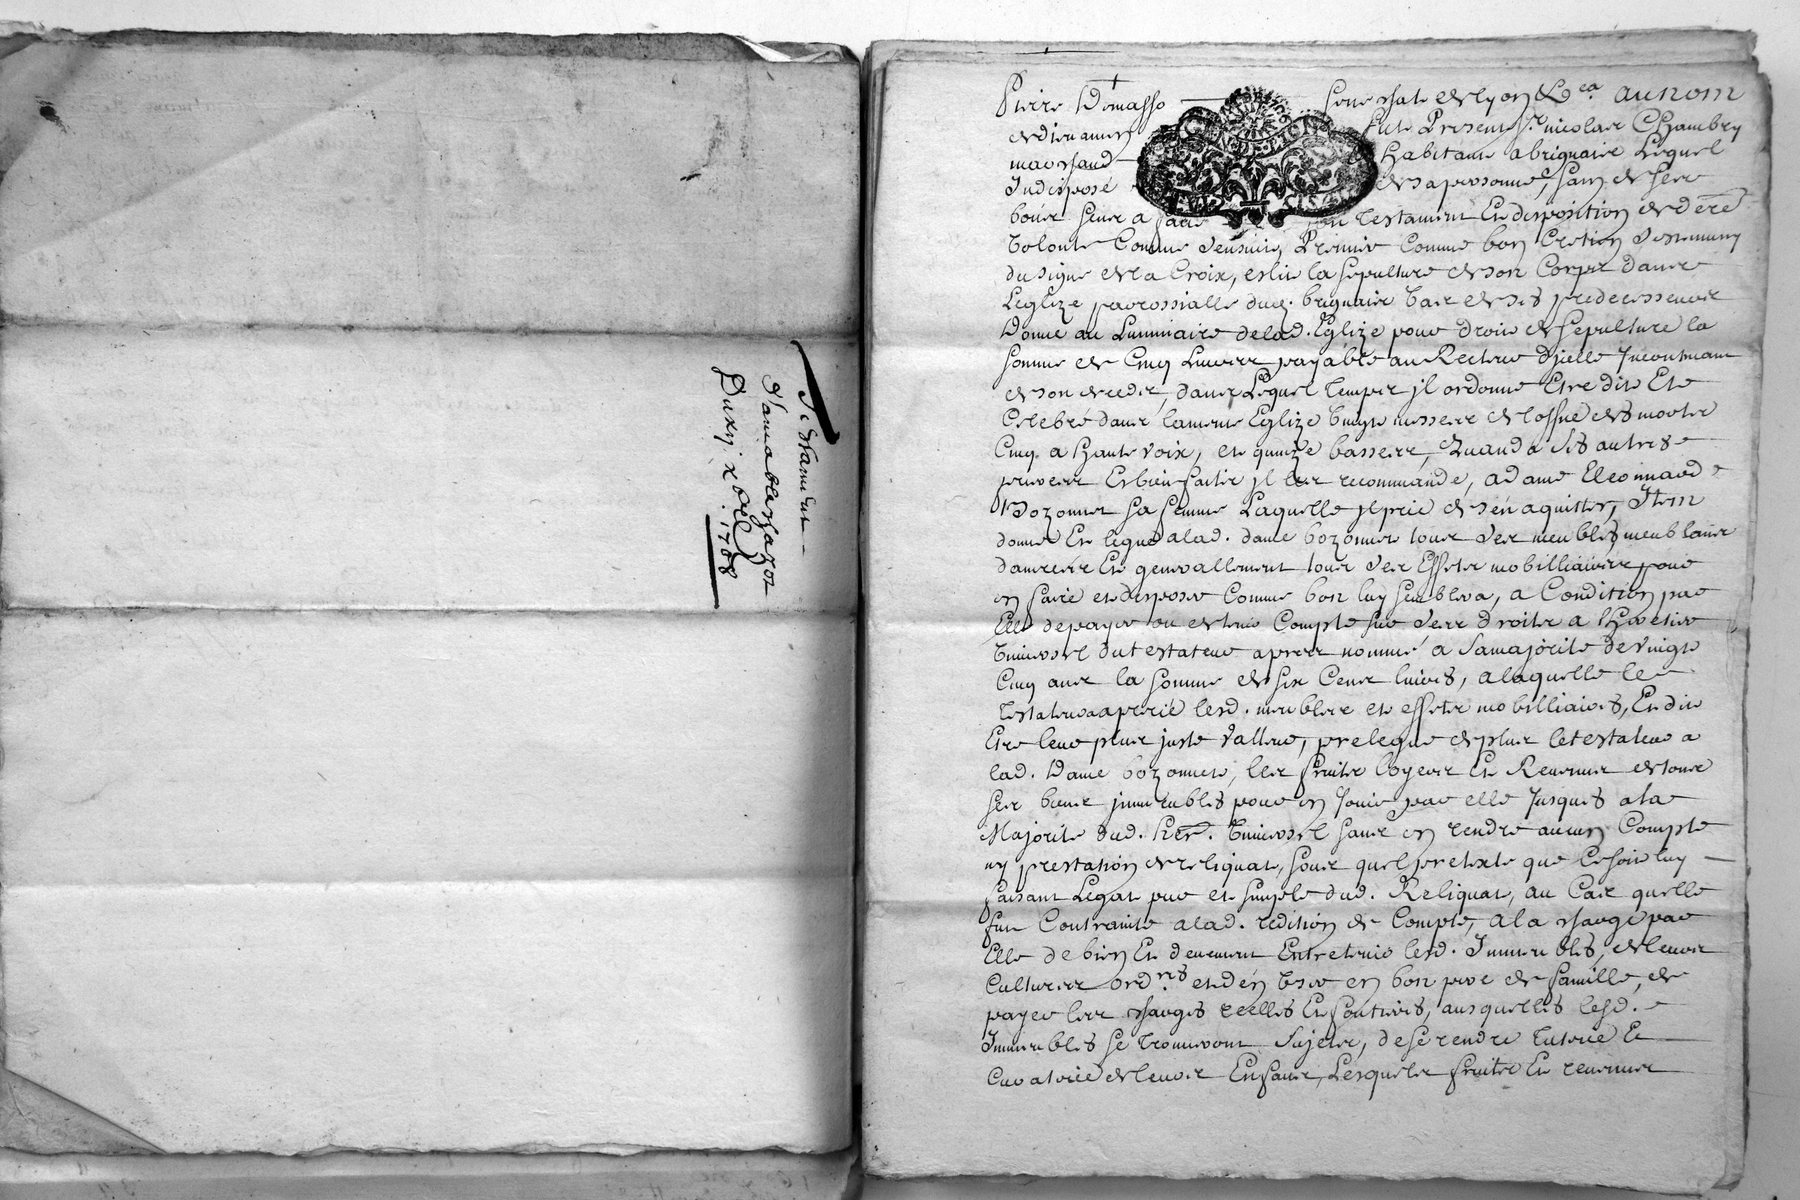 Testament
d'amable
Du xij xbre 1708
Pierre Domasse senechal de lyon &ca au nom
de dieu amen fut Present Sr nicolas CHambry
marchand Habitant a brignais Lequel
Indisposé de sa personne, sain de sens
voulant faire son Testament Et disposition de dere
Volonté Comme s'ensuit, Premier comme bon Cretien s'est muny
du signe de la Croix, eslit la sepulture de son Corps dans
L'eglize parrossialle dud. brignais Vas de ses predecesseurs
Donne au Luminaire de lad. Eglize pour droit de sepulture la
somme de Cinq Livres payable au Recteur d'icelle Incontinant
de son decedz, dans Lequel Temps jl ordonne Etre dit Et
Celebré dans la meme Eglize Vingt messes de l'office des morts
Cinq a Haute voix, et quinze basses, Quand a ses autres
prieres Et bien faits jl les recommande, a dame Eleonnard
Bozonnet sa femme Laquelle jl prie de s'en aquitter, Item
donne Et legue a lad. dame bozonnet tous ses meubles meublans
danrées Et generallement tous ses Effets mobilliaires pour
en faire et disposer Comme bon luy semblera, a Condition par
Elle de payer ou de tenir Compte sur ses droits a l'Heritier
Universel du testateur apres nommé a sa majorité de vingt
Cinq ans la somme de six Cens livres, a laquelle le
Testateur a aprecié lesd. meubles et effets mobilliaires, Et dit
Etre leur plus juste valleur, prelegue de plus le testateur a
lad. Dame bozonnet, les fruits loyers Et Revenus de tous
ses biens jmmeubles pour en Jouir par elle Jusques a la
Majorité dud. Her. Universel sans en rendre aucun Compte
ny prestation de reliquat, sous quel pretexte que Ce soit luy
faisant Legat pur et simple dud. Reliquat, au Cas qu'elle
fut Contrainte a lad. redition de Compte, a la charge par
Elle de bien Et deuement Entretenir lesd. Jmmeubles, de leurs
Cultures ordres et d'en User en bon pere de famille, de
payer les charges reelles Et foncieres, ausquelles lesd.
Jmmeubles se Trouveront Sujets, de se rendre Tutrice Et
Curatrice de leurs Enfans, Lesquels fruits Et revenus